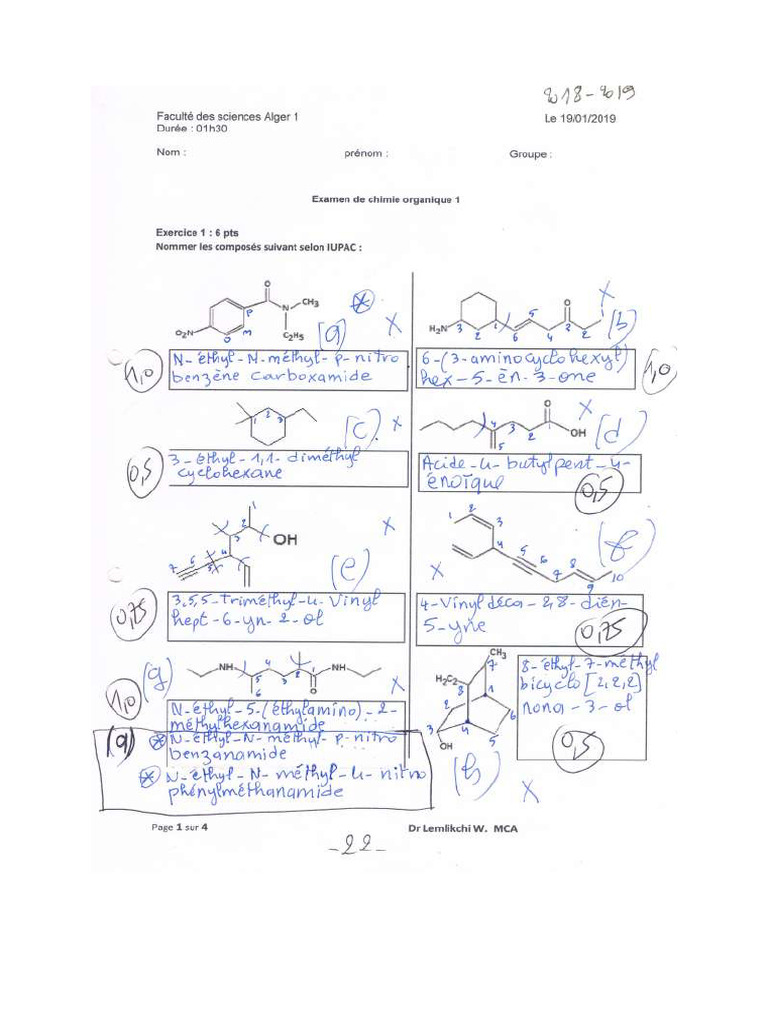 218-219
Faculté des sciences Alger 1
Le 19/01/2019
Durée : 01h30
Nom : prénom : Groupe :
Examen de chimie organique 1
Exercice 1 : 6 pts
Nommer les composés suivant selon IUPAC :
O
N CH3
O2N
C2H5
P
M
O
(a)
X
1,0
N-éthyl-N-méthyl-p-nitro
benzène carboxamide
O
H2N 3 2 1 6 5 4 2
(b)
X
6-(3-aminocyclohexyl)
hex-5-èn-3-one
1,0
1 2 3
(c)
X
0,5
3-éthyl-1,1-diméthyl
cyclohexane
O
OH
4 3 2 5
(d)
X
Acide-4-butylpent-4-
énoïque
0,5
1
2
3
OH
4
7 6 5
(e)
X
0,75
3,5,5-Triméthyl-4-Vinyl
hept-6-yn-2-ol
1 2 3 4 5 6 7 8 9 10
(f)
X
4-Vinyl déca-2,8-dién-
5-yne
0,75
NH 4 2 1 NH
5 3
6 O
(g)
X
1,0
N-éthyl-5-(éthylamino)-2-
méthylhexanamide
CH3
7
H3C2 8 1
2 6
3 4 5
OH
(h)
X
8-éthyl-7-méthyl
bicyclo[2,2,2]
nona-3-ol
0,5
(a) * N-éthyl-N-méthyl-p-nitro
benzanamide
* N-éthyl-N-méthyl-4-nitro
phénylméthanamide
Page 1 sur 4
Dr Lemlikchi W. MCA
-22-